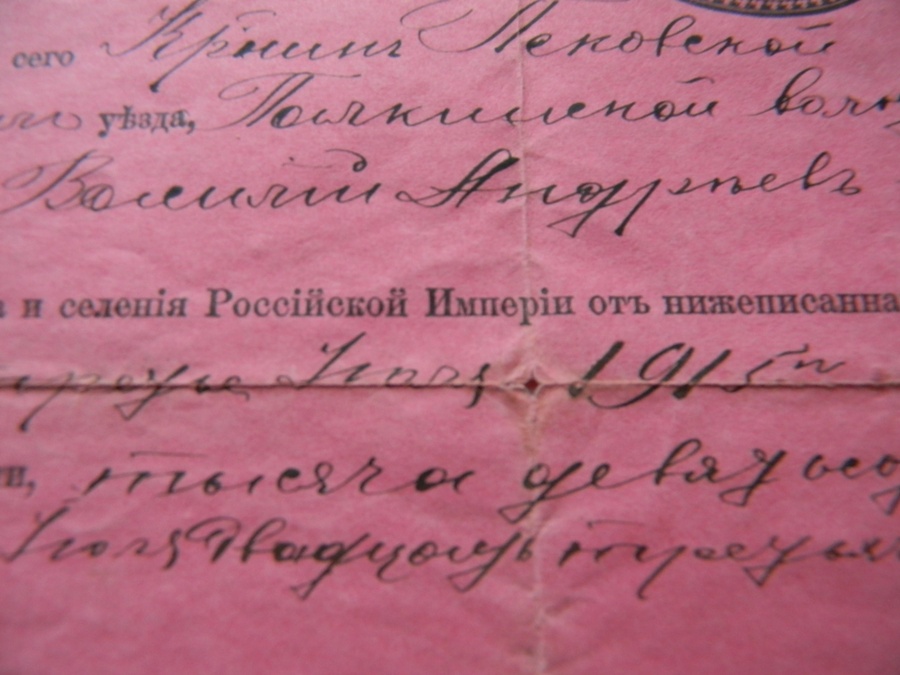 сего Кр-нинъ Псковской
уѣзда, волос
Василій Андреевъ
и селенія Россійской Имперіи отъ нижеписанна
Іюля 1915 г
тысяча девятьсо
Іюля двадцать третья